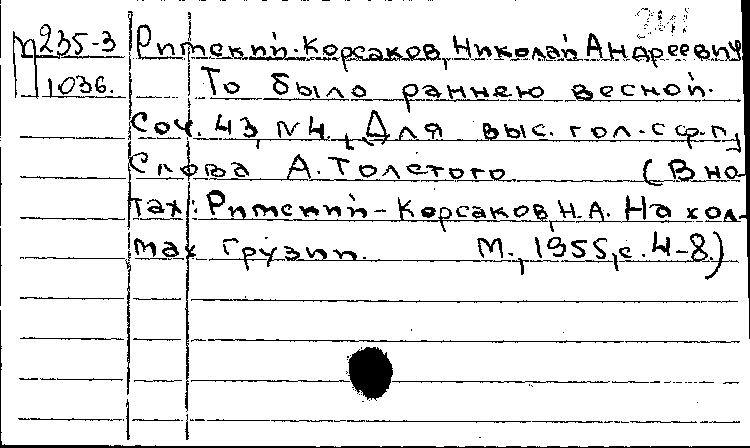 241
П235-3 Римский-Корсаков, Николай Андреевич
1036. То было раннею весной.
Соч. 43, N4. (Для выс. гол. с ф.п.,
Слова А. Толстого (В но-
тах: Римский-Корсаков, Н.А. На хол-
мах Грузии. М., 1955, с. 4-8.)